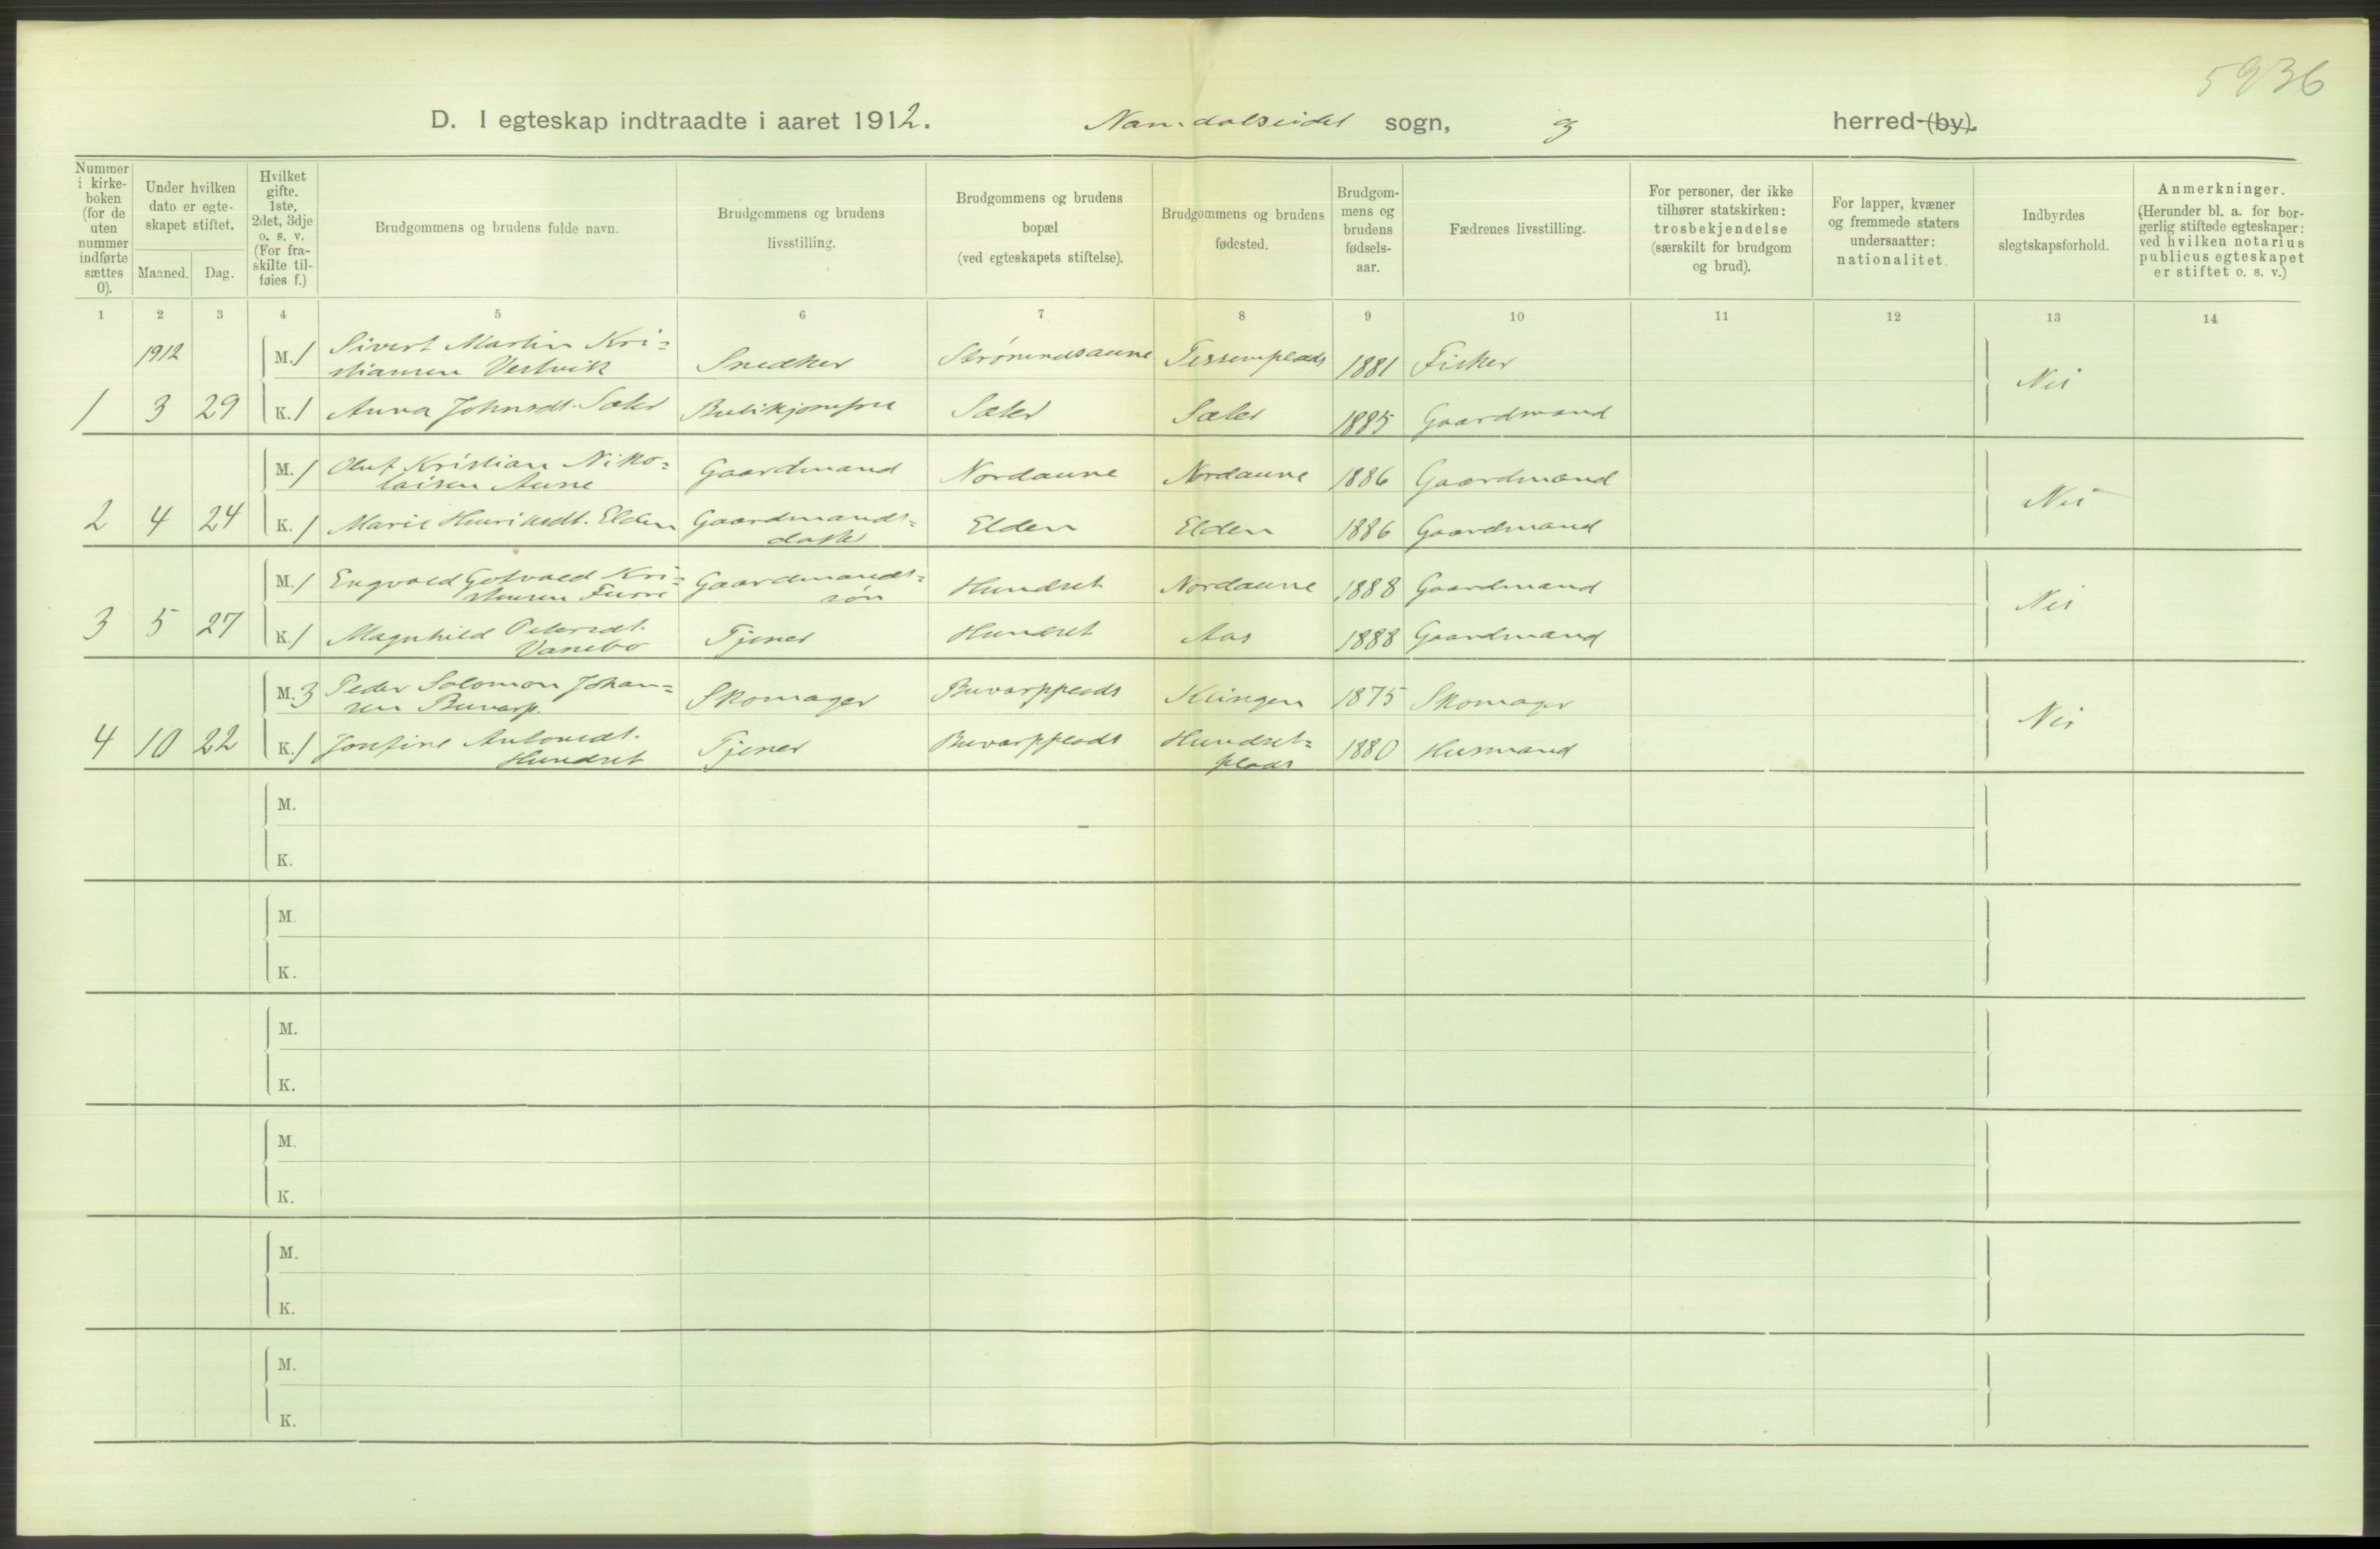 5936
D. I egteskap indtraadte i aaret 1912. Namdalseidet sogn, og herred (by).
Nummer i kirke-boken (for de uten nummer indførte sættes 0).
Under hvilken dato er egte-skapet stiftet.
Maaned. Dag.
Hvilket gifte. 1ste, 2det, 3dje o. s. v. (For fra-skilte til-føies f.)
Brudgommens og brudens fulde navn.
Brudgommens og brudens livsstilling.
Brudgommens og brudens bopæl (ved egteskapets stiftelse).
Brudgommens og brudens fødested.
Brudgom-mens og brudens fødsels-aar.
Fædrenes livsstilling.
For personer, der ikke tilhører statskirken: trosbekjendelse (særskilt for brudgom og brud).
For lapper, kvæner og fremmede staters undersaatter: nationalitet.
Indbyrdes slegtskapsforhold.
Anmerkninger. (Herunder bl. a. for bor-gerlig stiftede egteskaper: ved hvilken notarius publicus egteskapet er stiftet o. s. v.)
1 2 3 4 5 6 7 8 9 10 11 12 13 14
1912 M. 1 Sivert Martin Kri=
stiansen Vestvik Snedker Strømmesaune Tessemplads 1881 Fisker Nei
1 3 29 K. 1 Anna Johnsdt. Sæter Butikjomfru Sæter Sæter 1885 Gaardmand
M. 1 Oluf Kristian Niko=
laisen Aune Gaardmand Nordaune Nordaune 1886 Gaardmand Nei
2 4 24 K. 1 Marie Henriksdt. Elden Gaardmands=
datter Elden Elden 1886 Gaardmand
M. 1 Engvald Gotvald Kri=
stensen Furre Gaardmands=
søn Hundset Nordaune 1888 Gaardmand Nei
3 5 27 K. 1 Magnhild Petersdt.
Vanebo Tjener Hundset Aas 1888 Gaardmand
M. 3 Peder Solomon Johan=
sen Buvarp. Skomager Buvarpplads Klingen 1875 Skomager Nei
4 10 22 K. 1 Josefine Antonsdt.
Hundset Tjener Buvarpplads Hundset=
plads 1880 Husmand
M.
K.
M.
K.
M.
K.
M.
K.
M.
K.
M.
K.